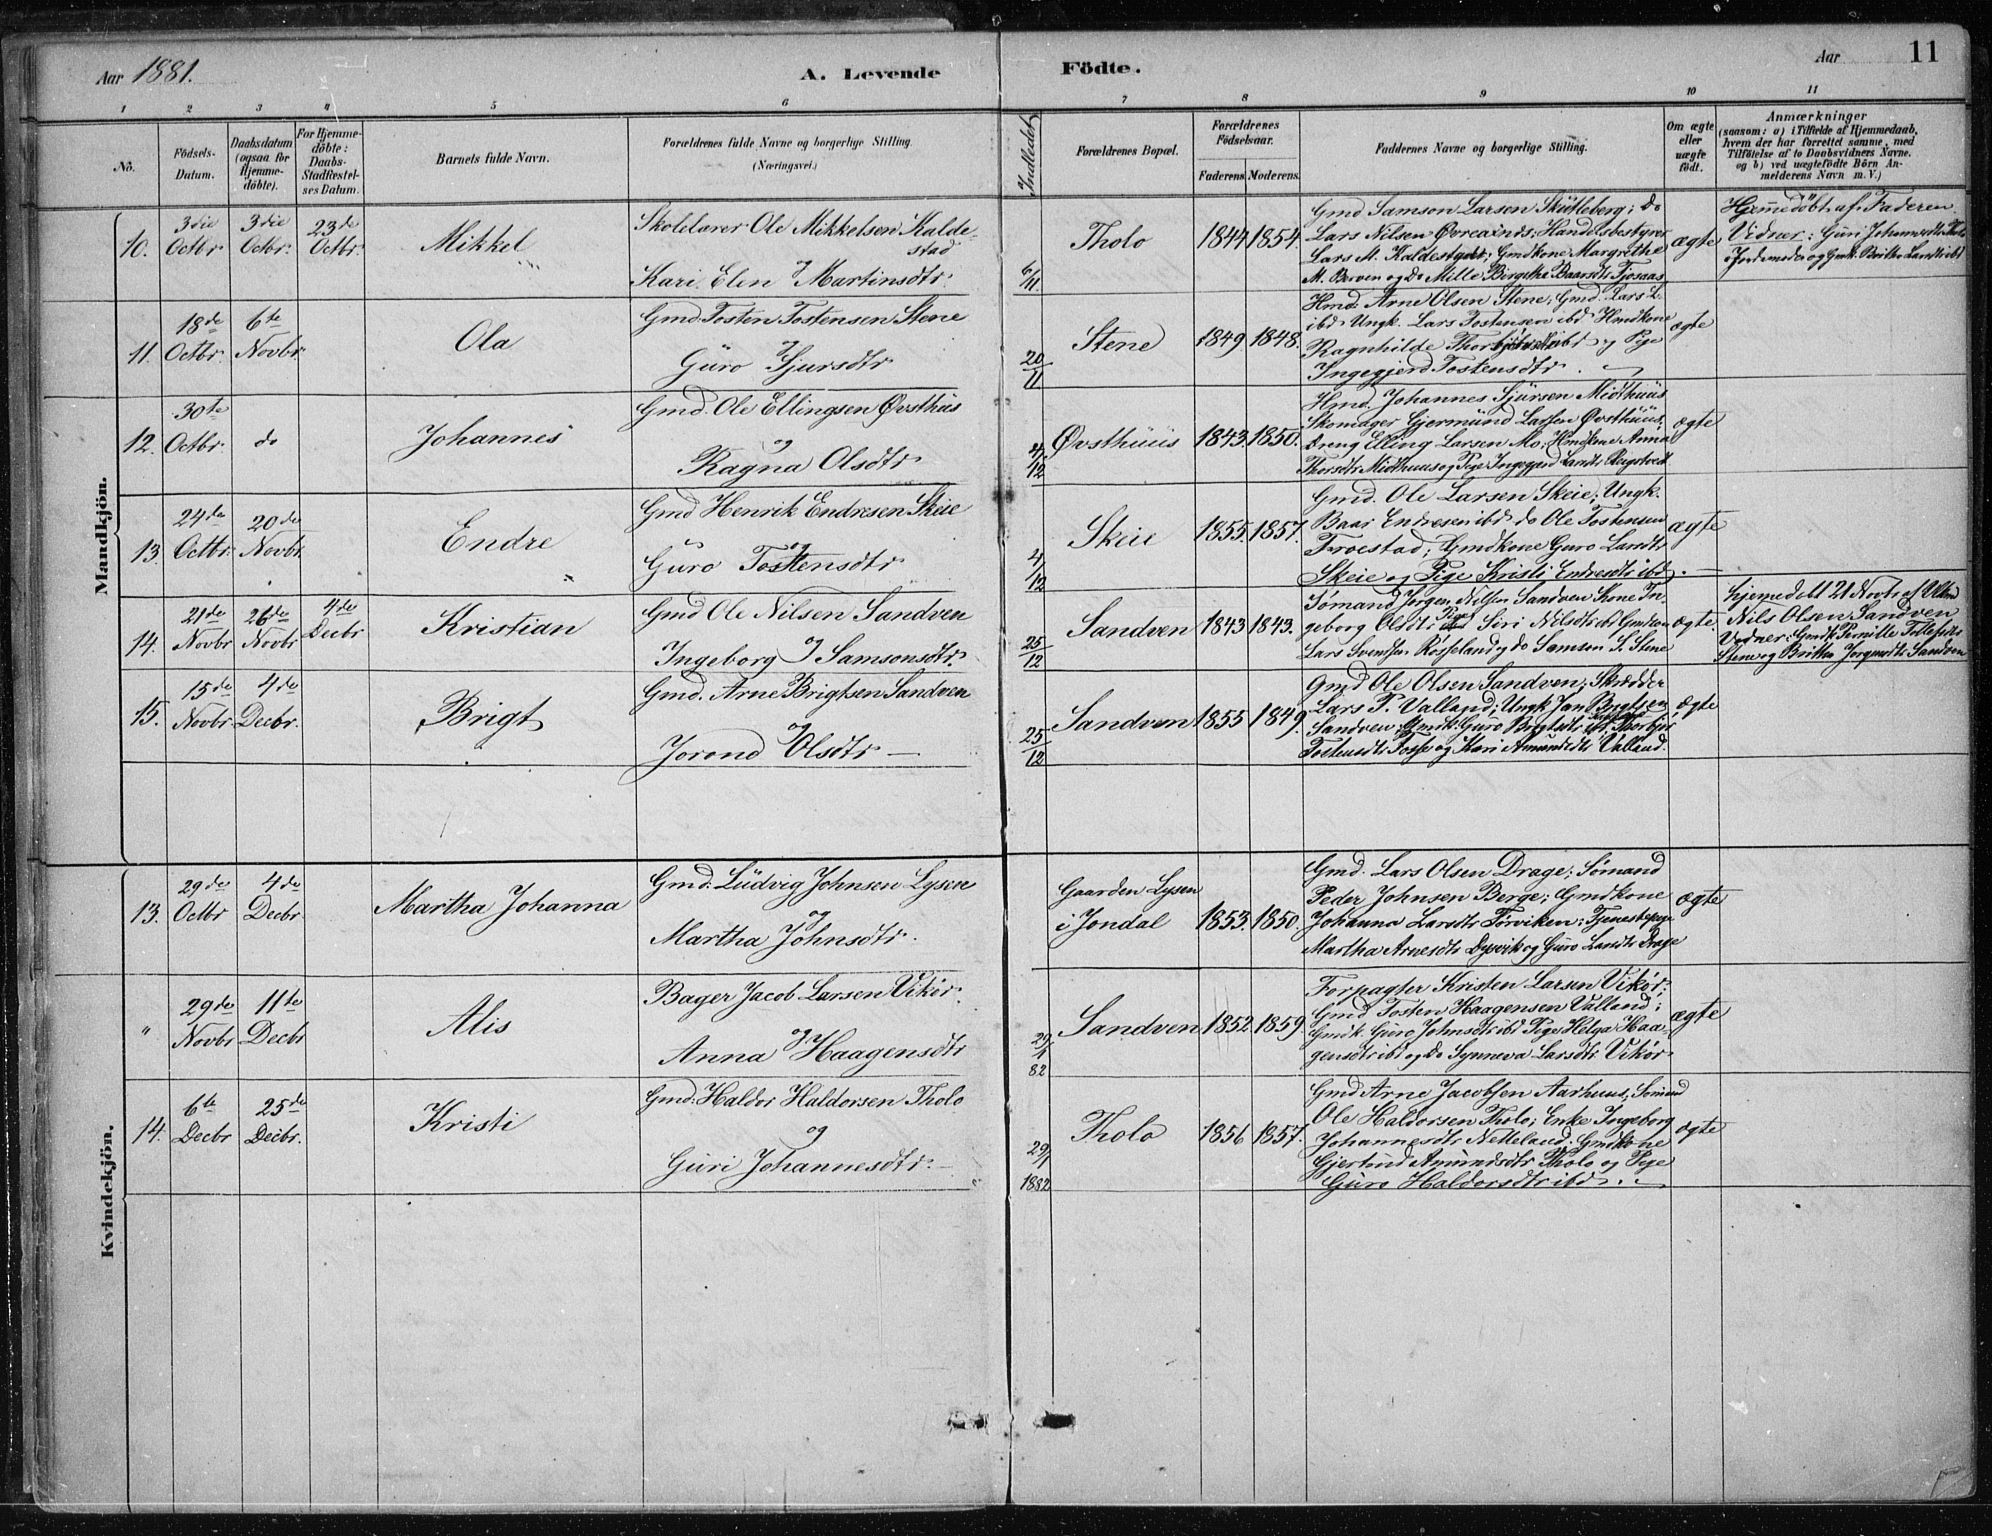 Aar 1881.
A. Levende
Födte.
Aar
11
1 2 3 4 5 6 7 8 9 10 11
No.
Födsels-Datum.
Daabsdatum (ogsaa for Hjemme-döbte).
For Hjemme-döbte: Daabs-Stadfæstel-ses Datum.
Barnets fulde Navn.
Forældrenes fulde Navne og borgerlige Stilling.
(Næringsvei.)
Indledet
Forældrenes Bopæl.
Forældrenes Födselsaar.
Faderens. Moderens.
Faddernes Navne og borgerlige Stilling.
Om ægte eller uægte födt.
Anmærkninger
(saasom: a) i Tilfælde af Hjemmedaab,
hvem der har forrettet samme, med
Tilföielse af to Daabsvidners Navne.
og b) ved uægtefödte Börn An-
melderens Navn m. V.)
Mandkjön.
10. 3die Octbr. 3die Octbr. 23de Octbr. Mikkel
Skolelærer Ole Mikkelsen Kalde-
stad
og
Kari Elen Martinsdtr.
6/11 Tholo 1844 1854.
Gmd Samson Larsen Skutleberg; do
Lars Nilsen Øvreainds; Handelsbestyrer
Lars M. Kaldestad; Gmdkone Margrethe
M. Berven og do Mille Birgithe Baardsdtr Fjosaas
ægte
Hjemmedøbt af Faderen
Vidner: Guri Johannesdtr Tholo
Jordemoder og Gmk. Britha Larsdtr ibd
11. 18de Octbr. 6te Novbr. Ola
Gmd. Tosten Tostensen Stene
og
Guro Sjursdtr
20/11 Stene 1849 1848.
Hmd. Arne Olsen Stene; Gmd. Lars L.
ibd Ungk. Lars Tostensen ibd Hmdkone
Ragnhilde Thorbjörnsdtr ibd og Pige
Ingegjerd Tostensdtr.
ægte
12. 30te Octbr. do Johannes
Gmd. Ole Ellingsen Øvsthus
og
Ragna Olsdtr
4/12 Øvsthuus 1843. 1850.
Hmd. Johannes Sjursen Midthuus
Skomager Gjermund Larsen Øvsthuus.
Dreng Elling Larsen Mo; Hmdkone Anna
Thorsdtr Midthuus og Pige Ingegjerd Larsdtr
ægte
13. 24de Octbr. 20de Novbr. Endre
Gmd Henrik Endresen Skeie
og
Guro Tostensdtr
4/12 Skeie 1855. 1857.
Gmd. Ole Larsen Skeie; Ungk.
Baar Endresen ibd do Ole Tostensen
Froestad; Gmdkone Guro Larsdtr
Skeie og Pige Kristi Endresdtr ibd.
ægte
14. 21de Novbr 26de Novbr 4de Decbr Kristian
Gmd Ole Nilsen Sandven
og
Ingeborg Samsonsdtr.
25/12 Sandven 1843 1843.
Sømand Jørgen Nilsen Sandven Kone In-
geborg Olsdtr Pige Siri Nilsdtr ibd Gmdkone
Lars Svensen Røsseland og do Samson S. Stene
ægte.
Hjemmedøbt 21 Novbr af
Nils Olsen Sandven
Vidner: Gmdk Pernille Tollefsdtr
Stene og Britha Jørgensdtr Sandven
15. 15de Novbr 4de Decbr. Brigt
Gmd. Arne Brigtsen Sandven
og
Jorond Olsdtr —
25/12 Sandven 1855 1849.
Gmd Ole Olsen Sandven; Skrædder
Lars P. Valland; Ungk Jan Brigtsen
Sandven; Gmdk. Guro Brigtsdtr ibd; Thorbjør
Tostensdtr Fosse og Kari Amundsdtr Valland.
ægte
Kvindekjön.
13. 29de Octbr 4de Decbr Martha Johanna
Gmd. Ludvig Johnsen Lysen
og
Martha Johnsdtr.
Gaarden Lysen
i Jondal 1853. 1850.
Gmd. Lars Olsen Drage; Sømand
Peder Johnsen Berge; Gmdkone
Johanna Larsdtr Tørviken; Tjenestepige
Martha Arnesdtr Dysvik og Guro Larsdtr Drage
ægte
" 29de Novbr 11te Decbr Alis
Bager Jacob Larsen Vikør.
og
Anna Haagensdtr
29/1 82 Sandven 1852. 1859.
Forpagter Kristen Larsen Vikør;
Gmd Tosten Haagensen Valland;
Gmdk Guro Johnsdtr ibd Pige Helga Haa-
gensdtr ibd og do Synneva Larsdtr Vikør
ægte
14. 6te Decbr 25de Decbr. Kristi
Gmd. Haldor Haldorsen Tholo
og
Guri Johannesdtr. —
29/1 1882 Tholo 1856 1857.
Gmd Arne Jacobsen Aarhuus, Sömand
Ole Haldorsen Tholo; Enke Ingeborg
Johannesdtr Netteland; Gmdkone
Gjertrud Amundsdtr Tholo og Pige
Guro Haldorsdtr ibd.
ægte